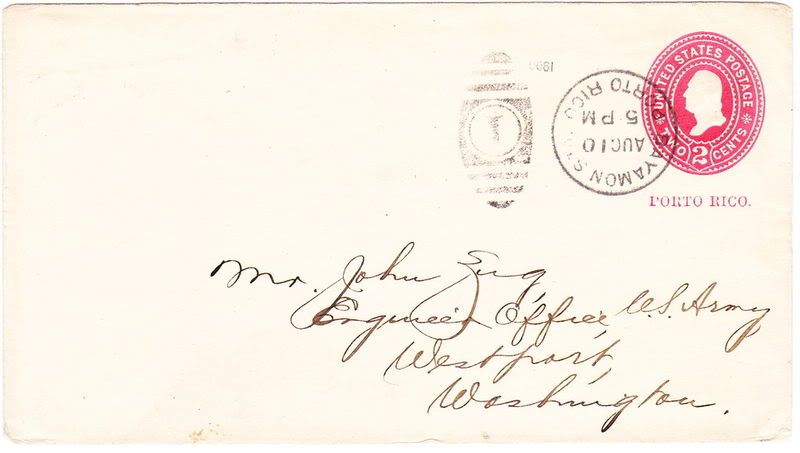 UNITED STATES POSTAGE
TWO 2 CENTS
PORTO RICO.
BAYAMON STA.
PORTO RICO
AUG 10
5 PM
1900
1
Mr. John Eng
Engineer Office, U.S. Army
Westport,
Washington.